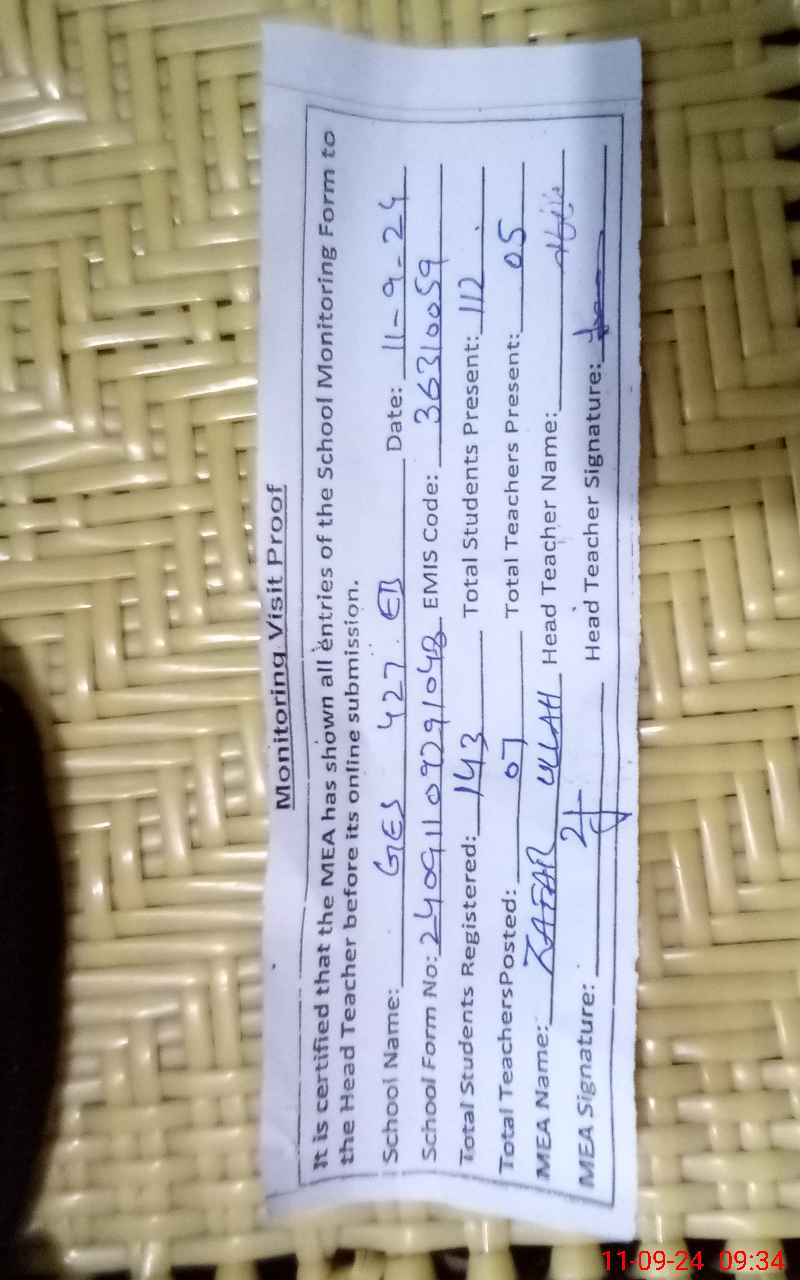 Monitoring Visit Proof
It is certified that the MEA has shown all entries of the School Monitoring Form to
the Head Teacher before its online submission.
School Name: GES 427 EB Date: 11-9-24
School Form No: 24091109291048 EMIS Code: 36310059
Total Students Registered: 143 Total Students Present: 112
Total TeachersPosted: 07 Total Teachers Present: 05
MEA Name: ZAFAR ULLAH Head Teacher Name:
MEA Signature: Head Teacher Signature:
11-09-24 09:34